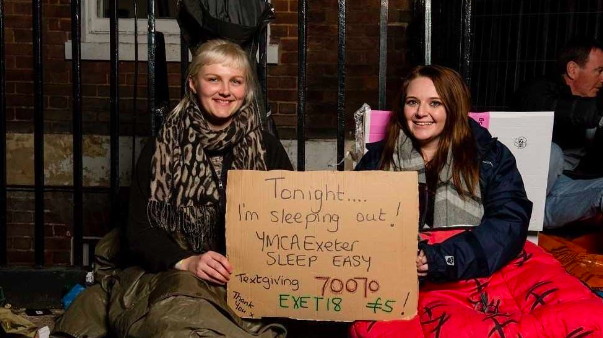 Tonight....
I'm sleeping out!
YMCA Exeter
SLEEP EASY
Textgiving 70070
Thank You EXET18 £5!